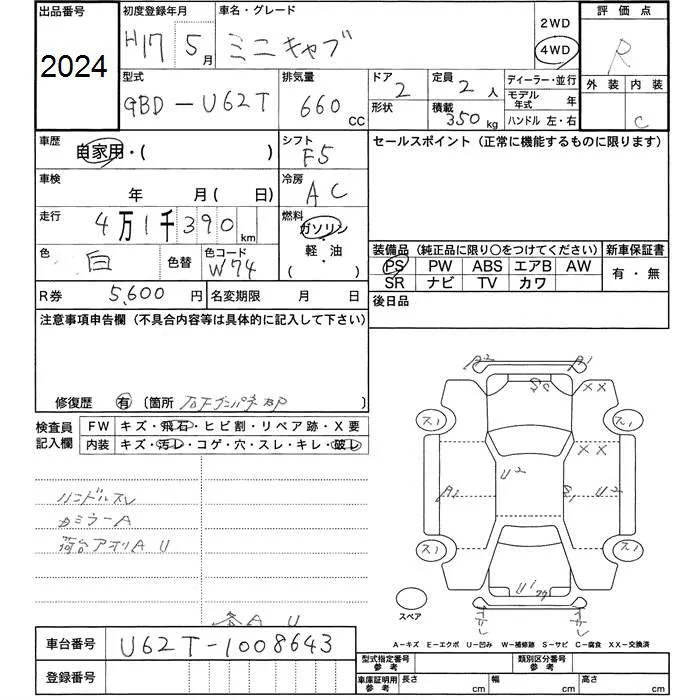 出品番号 初度登録年月 車名・グレード 2WD 評価点
2024 H17 5月 ミニキャブ 4WD R
型式 排気量 ドア 定員 ディーラー・並行 外装 内装
GBD-U62T 660 CC 2 2人 モデル年式 年 C
形状 積載 350kg ハンドル 左・右
車歴 自家用・( ) シフト F5 セールスポイント(正常に機能するものに限ります)
車検 年 月( 日) 冷房 AC
走行 4万1千390km 燃料 ガソリン・軽・油 ( )
色 白 色替 色コード W74 装備品(純正品に限り○をつけてください) 新車保証書
PS PW ABS エアB AW 有・無
SR ナビ TV カワ
R券 5,600円 名変期限 月 日 後日品
注意事項申告欄(不具合内容等は具体的に記入して下さい)
修復歴 有 〔箇所 〕
検査員記入欄 FW キズ・飛石・ヒビ割・リペア跡・X要
内装 キズ・汚レ・コゲ・穴・スレ・キレ・破レ
A2 A1
XX
スリ スリ
XX
U2
A1 S1 U2
スリ スリ
U1
ハンドルスレ
ミラーA
荷台アオリA U
A U
スペア
A-キズ E-エクボ U-凹み W-補修跡 S-サビ C-腐食 XX-交換済
車台番号 U62T-1008643
登録番号
型式指定番号 参考 類別区分番号 参考
車庫証明用 参考 長さ cm 幅 cm 高さ cm